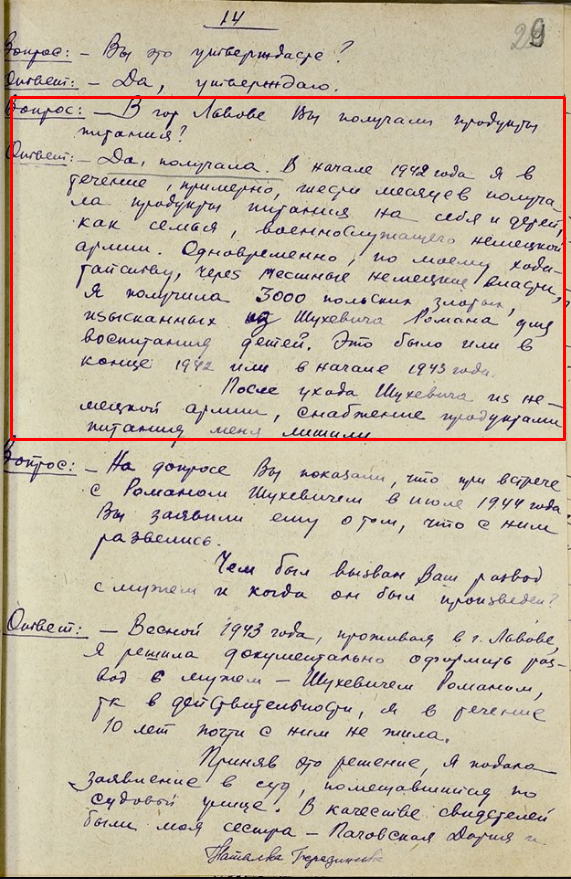 14
29
Вопрос: – Вы это утверждаете?
Ответ: – Да, утверждаю.
Вопрос: – В гор Львове Вы получали продукты
питания?
Ответ: – Да, получала. В начале 1942 года я в
течение, примерно, шести месяцев получа-
ла продукты питания на себя и детей,
как семья, военнослужащего немецкой
армии. Одновременно, по моему хода-
тайству, через местные немецкие власти,
я получила 3000 польских злотых,
взысканных из Шухевича Романа, для
воспитания детей. Это было или в
конце 1942 или в начале 1943 года.
После ухода Шухевича из не-
мецкой армии, снабжение продуктами
питания меня лишили
Вопрос: – На допросе Вы показали, что при встрече
с Романом Шухевичем в июле 1944 года
Вы заявили ему о том, что с ним
развелись.
Чем был вызван Ваш развод
с мужем и когда он был произведен?
Ответ: – Весной 1943 года, проживая в г. Львове,
я решила документально оформить раз-
вод с мужем – Шухевичем Романом,
тк в действительности, я в течение
10 лет почти с ним не жила.
Приняв это решение, я подала
заявление в суд, помещавшийся по
судовый улице. В качестве свидетелей
были моя сестра – Пачовская Дария и
Наталья Березинская